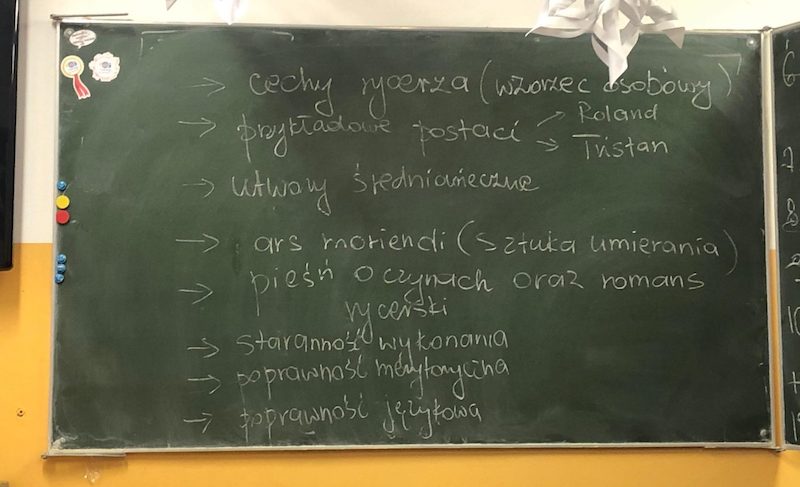 → cechy rycerza (wzorzec osobowy)
→ przykładowe postaci → Roland
→ Tristan
→ utwory średniowieczne
→ ars moriendi (sztuka umierania)
→ pieśń o czynach oraz romans
rycerski
→ staranność wykonania
→ poprawność merytoryczna
→ poprawność językowa